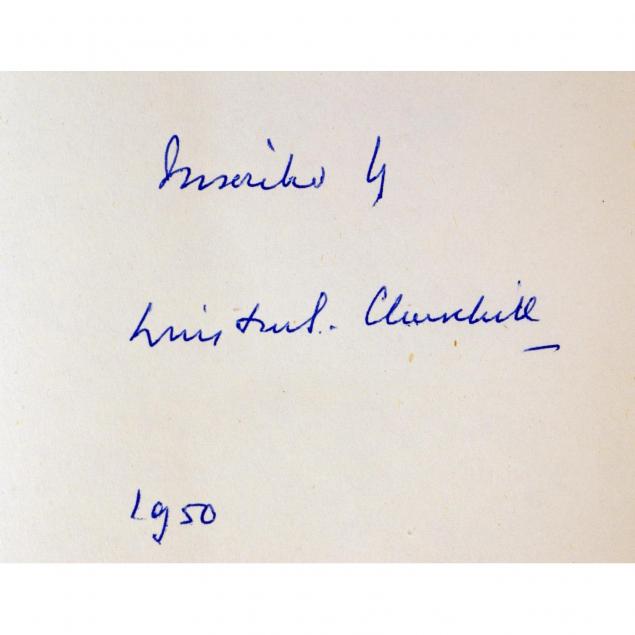 Inscribed by
Winston S. Churchill
1950